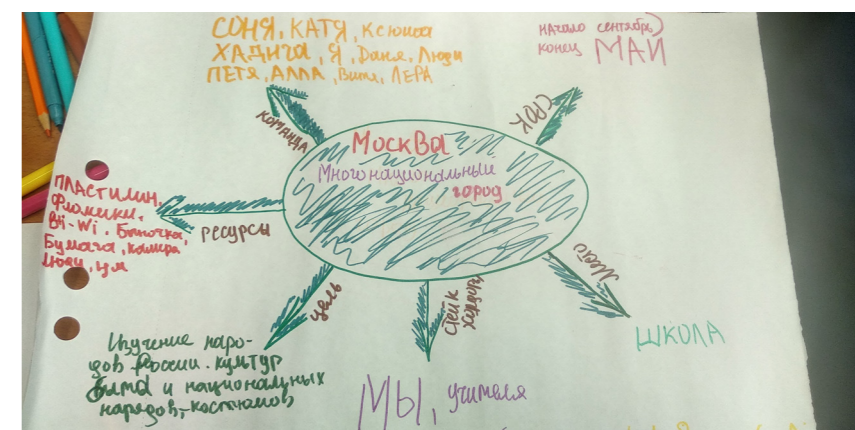 СОНЯ, КАТЯ, Ксюша
ХАДИГА, Я, Даня, Люди
ПЕТЯ, АЛЛА, Витя, ЛЕРА
начало сентябрь
конец МАЙ
КОМАНДА
СРОК
МОСКВА
Многонациональный
город
ПЛАСТИЛИН,
Фломики,
Wi-Wi, Баночка,
Бумага, камера
Люди, цм
РЕСУРСЫ
Место
ЦЕЛЬ
СТЕЙК
ХОЛДЕРЫ
ШКОЛА
Изучение наро-
дов России. культур
быта и национальных
народов,-костюмов
МЫ, учителя